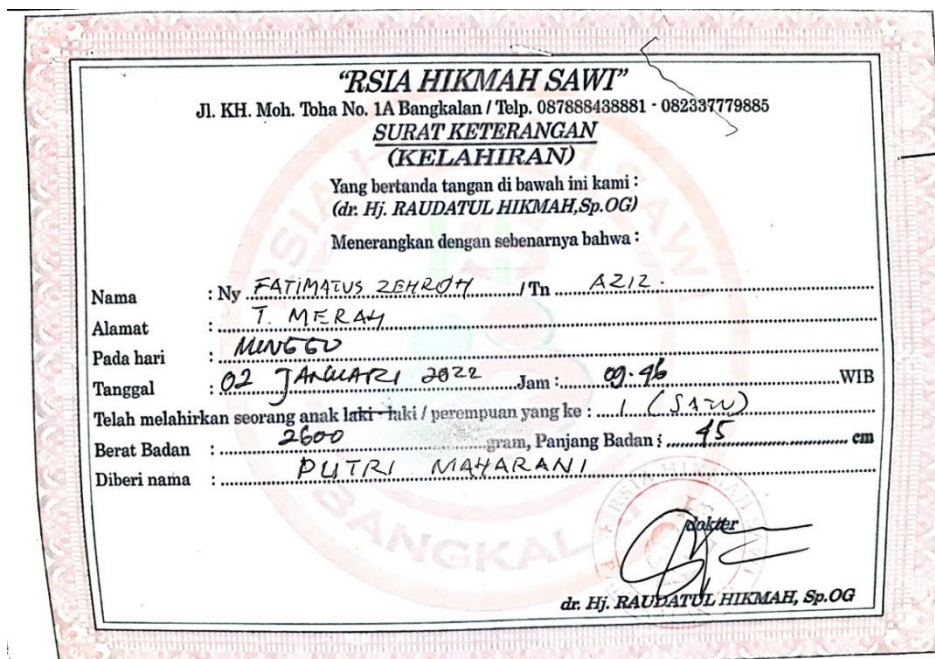 "RSIA HIKMAH SAWI"
Jl. KH. Moh. Toha No. 1A Bangkalan / Telp. 087888438881 - 082337779885
SURAT KETERANGAN
(KELAHIRAN)
Yang bertanda tangan di bawah ini kami :
(dr. Hj. RAUDATUL HIKMAH,Sp.OG)
Menerangkan dengan sebenarnya bahwa :
Nama : Ny FATIMATUS ZEHROH / Tn AZIZ.
Alamat : T. MERAH
Pada hari : MINGGU
Tanggal : 02 JANUARI 2022 Jam : 09.46 WIB
Telah melahirkan seorang anak laki - laki / perempuan yang ke : 1 (SATU)
Berat Badan : 2600 gram, Panjang Badan : 45 cm
Diberi nama : PUTRI MAHARANI
dokter
dr. Hj. RAUDATUL HIKMAH, Sp.OG